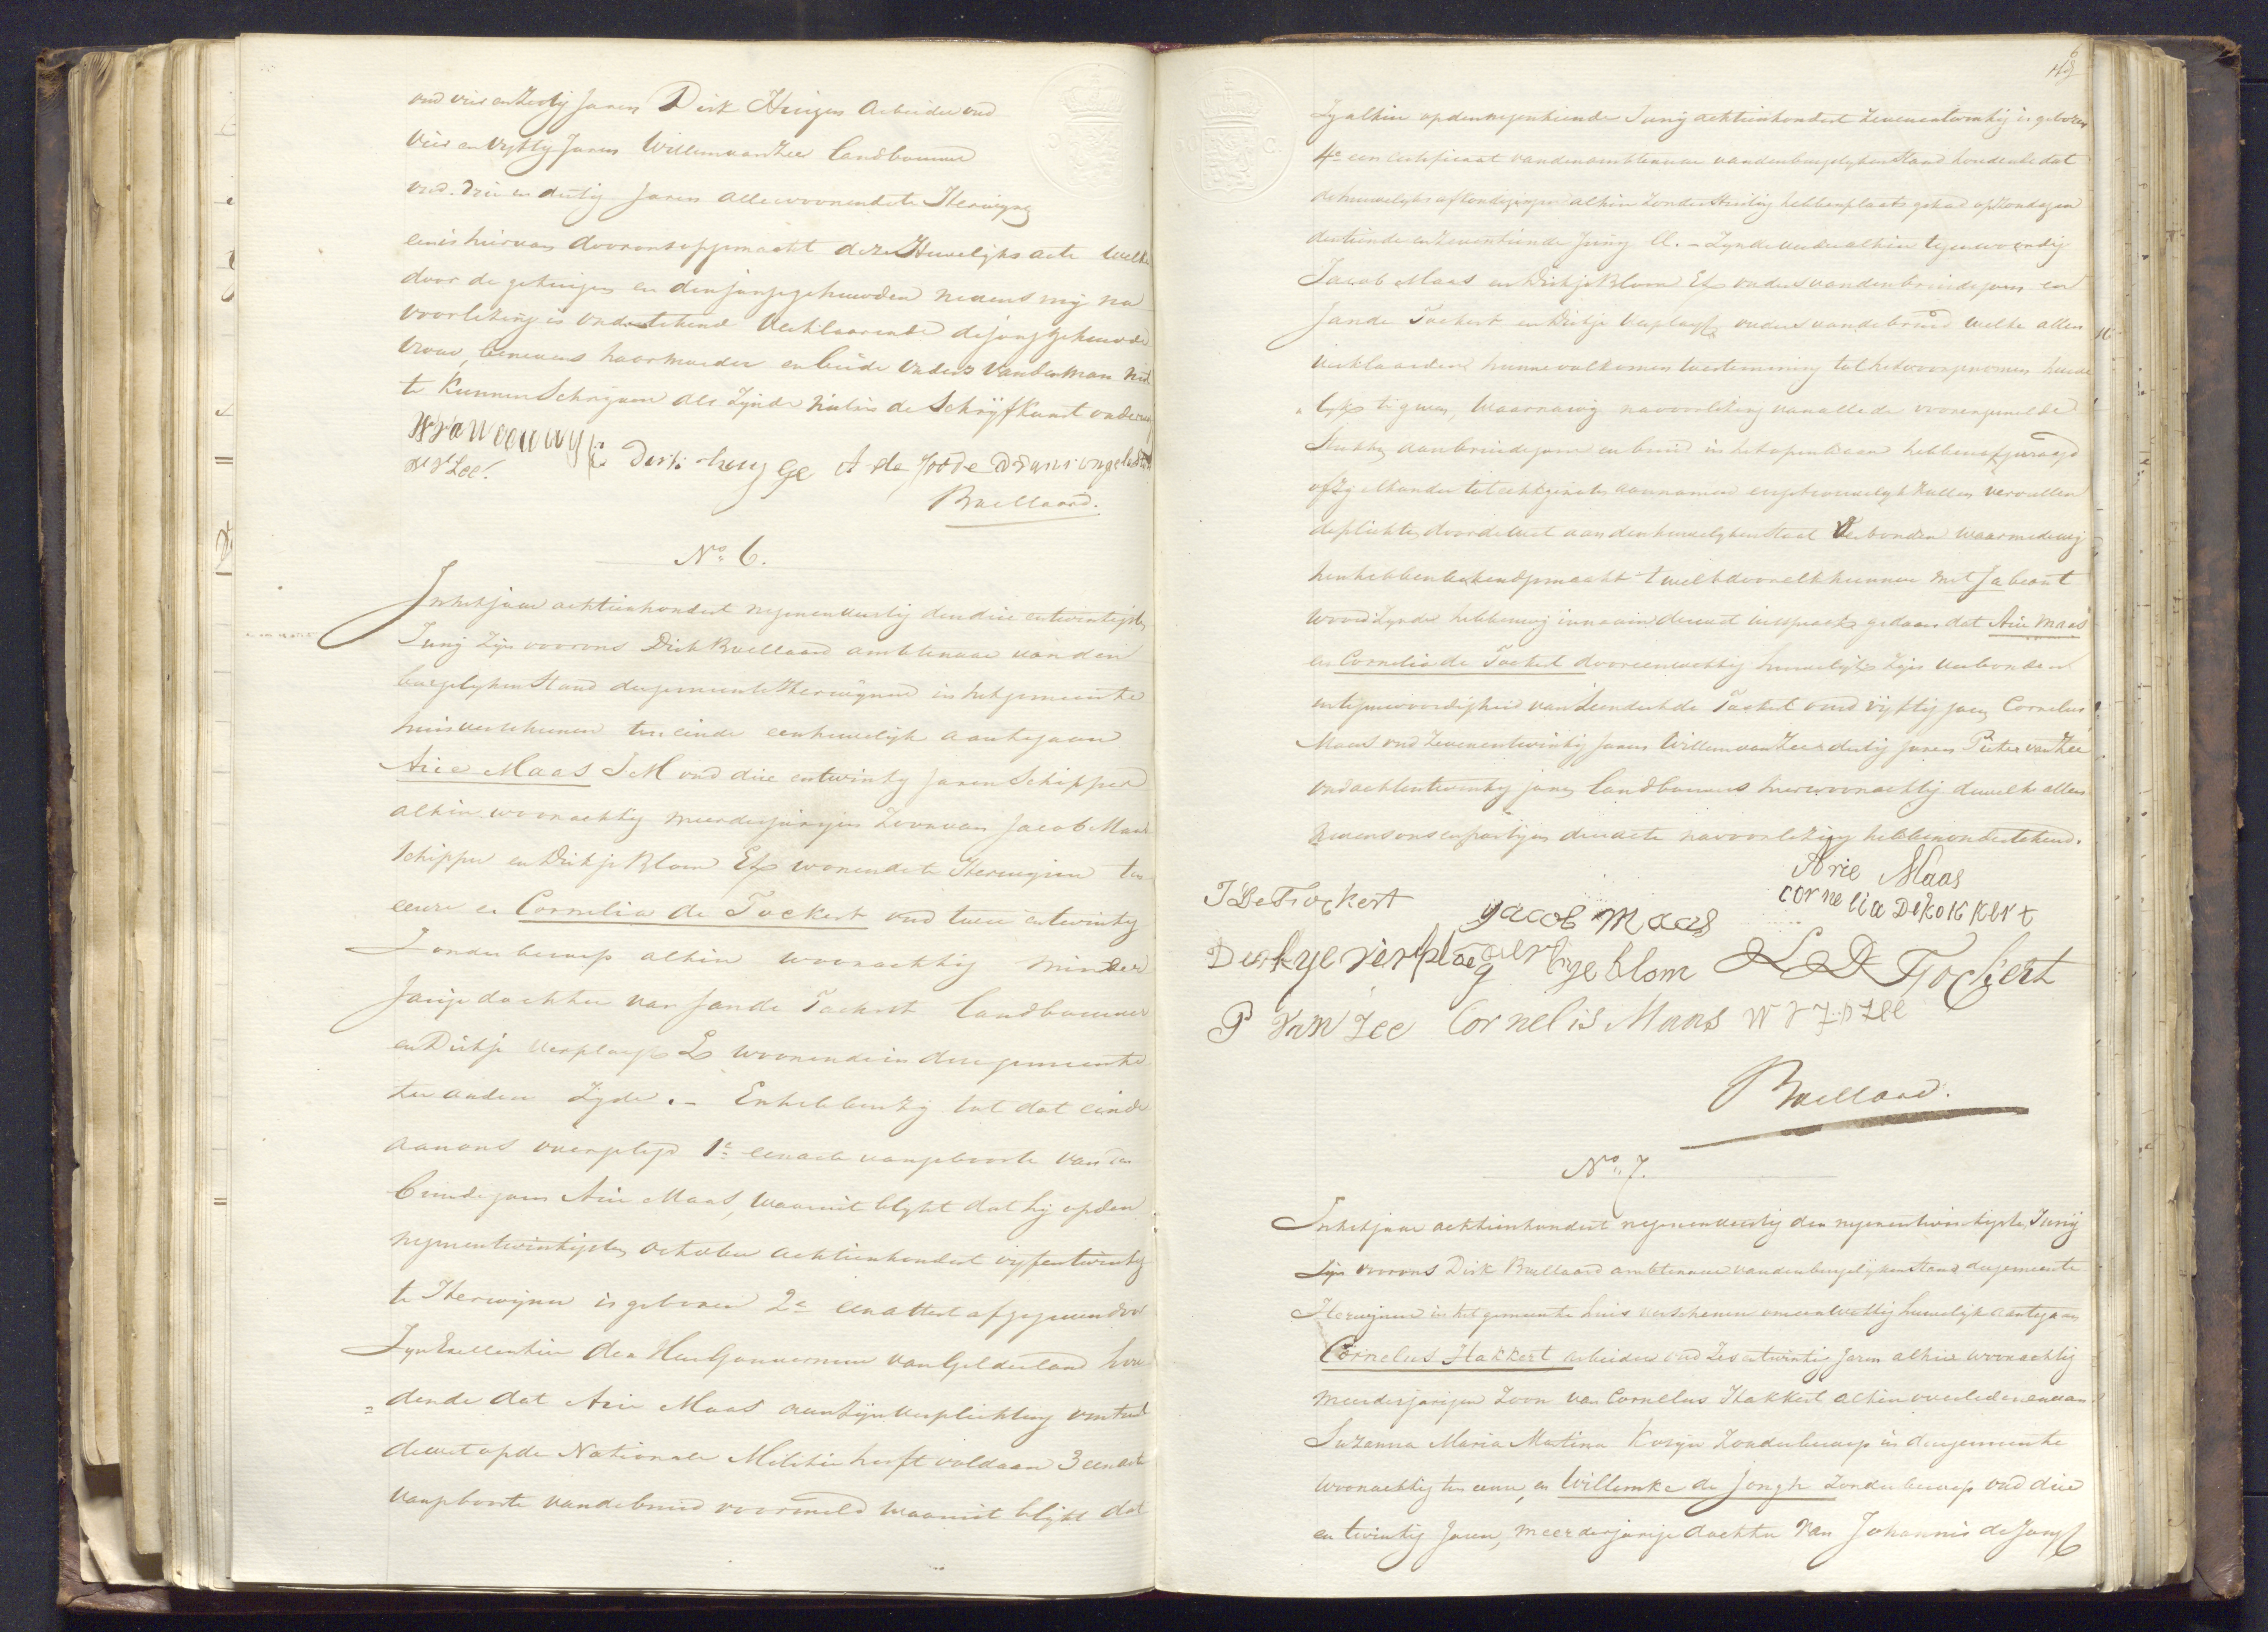 oud vier en zestig Jaren Dirk Huigen Arbeider oud
vier en vyftig Jaren Willem van Zee landbouwer
oud drie en dertig Jaren alle woonende te Herwynen
en is hiervan door ons opgemaakt deze Huwelyks acte welke
door de getuigen en den jonggehuwden nevens mij na
voorlezing is onderteekend verklaarende de jonggehuwde
vrouw, benevens haar moeder en beide ouders van den man niet
te kunnen Schryven als zynde niet in de Schryfkunst onderwezen
Dirk huyge A de Joode
W v Zee
Buellaard.
No. 6.
In het jaar achttienhondert negenenveertig den drie en twintigsten
Juny zijn voor ons Dirk Buellaard ambtenaar van den
burgelyken Stand der gemeente Herwynen in het gemeente
huis verschenen ten einde een huwelyk aantegaan
Arie Maas J M oud drie en twintig Jaren Schipper
alhier woonachtig meerderjarigen Zoon van Jacob Maas
Schipper en Dirkje Blom El wonende te Herwynen ten
eenre en Cornelia de Tockert oud twee en twintig
Zonder beroep alhier woonachtig minder
Jarige dochter van Jan de Tockert landbouwer
en Dirkje Verploegh El woonende in deze gemeente
ter andere Zyde. - En hebben zij tot dat einde
aan ons overgelegd 1e een acte van geboorte van den
bruidegom Arie Maas, waaruit blykt dat hij op den
negenentwintigsten october achttienhondert vyfentwintig
te Herwynen is geboren 2e een attest afgegeven door
Zyn Excellentie den Heer Gouverneur van Gelderland hou
dende dat Arie Maas aan zyn verplichting omtrent
de wet op de Nationale Militie heeft voldaan 3 een acte
van geboorte van de bruid voormeld waaruit blykt dat
6
Zy alhier op den negentiende Juny achttienhondert zevenentwintig is geboren
4e een certificaat van den ambtenaar van den burgelyken Stand houdende dat
de huwelyks afkondigingen alhier zonder Stuiting hebben plaats gehad op Zondagen
den tiende en zeventiende Juny ll. - Zynde verder alhier tegenwoordig
Jacob Maas en Dirkje Blom El ouders van den bruidegom en
Jan de Tockert en Dirkje Verploegh ouders van de bruid welke allen
verklaarden hunne volkomen toestemming tot het voorgenomen huwe
lyk te geven, waarna wij na voorlezing van alle de voorengemelde
Stukken aan bruidegom en bruid in het openbaar hebben afgevraagd
of zy elkander tot echtgenoten aannamen en getrouwelyk zullen vervullen
de plichten door de wet aan den huwelyken Staat verbonden waarmede wij
hen hebben bekend gemaakt t welk door elk hunner met Ja beant
woord zynde hebben wij in naam der wet uitspraak gedaan dat Arie Maas
en Cornelia de Tockert door een wettig huwelyk zijn verbonden
in tegenwoordigheid van Leendert de Tockert oud vyftig jaren Cornelis
Maas oud zevenentwintig Jaren Willem van Zee dertig jaren Pieter van Zee
oud achtentwintig jaren landbouwers hier woonachtig dewelke allen
nevens ons en partyen deze acte na voorlezing hebben onderteekend.
Arie Maas
J De Tockert Jacob Maas cornelia DekokKert
Derkye verploeg derkye blom L D Tockert
P van Zee Cornelis Maas W V Z
Buellaard.
No. 7.
In het jaar achttienhondert negenenveertig den negenentwintigsten Juny
zijn voor ons Dirk Buellaard ambtenaar van den burgelyken Stand der gemeente
Herwynen in het gemeente huis verschenen om een wettig huwelyk aantegaan
Cornelus Hakkert arbeider oud zes en twintig Jaren alhier woonachtig
meerderjarigen Zoon van Cornelus Hakkert alhier overleden en van
Suzanna Maria Martina Kosijn Zonder beroep in deze gemeente
woonachtig ten eenre, en Willemke de Jongh Zonder beroep oud drie
en twintig Jaren, meerderjarige dochter van Johannis de Jongh